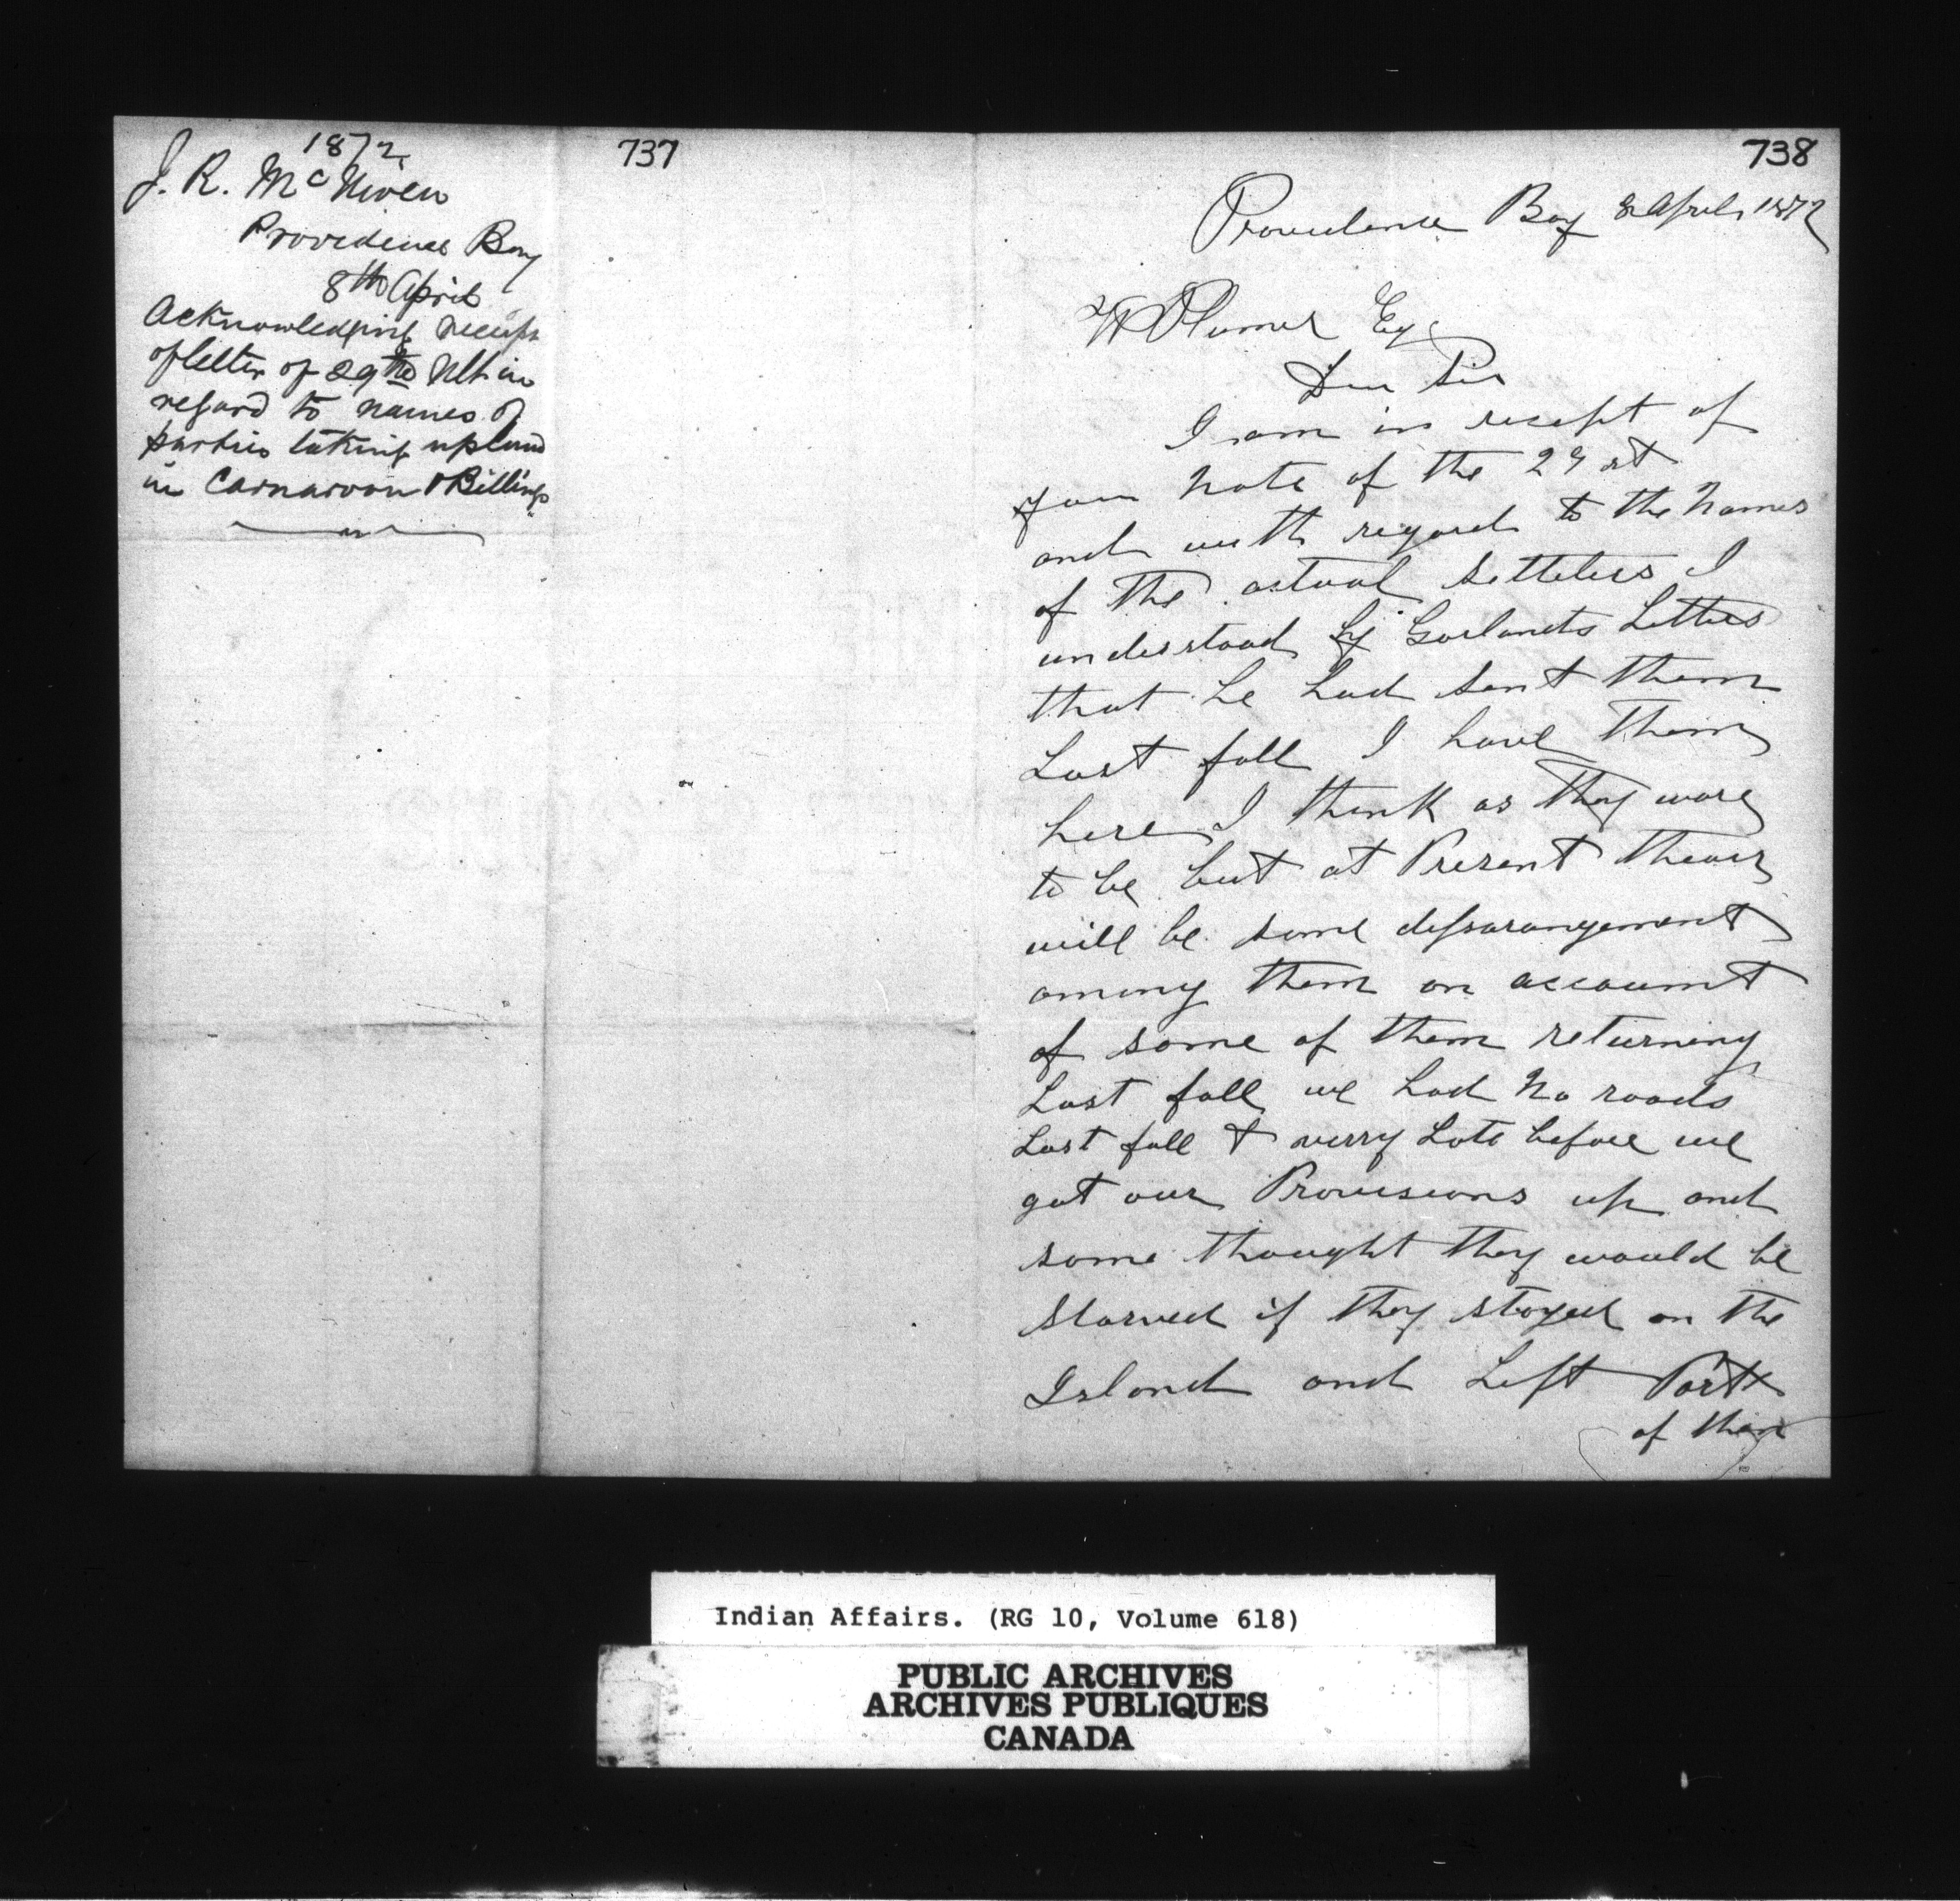 737
1872
J. R. McNiven
Providence Bay
8th April
Acknowledging receipt
of letter of 29th Ult in
regard to names of
parties taking up land
in Carnarvon & Billings
738
Providence Bay 8 April 1872
W Plumer Esq
Dear Sir
I am in recept of
your note of the 29 st
and with regard to the Names
of the actual settelers I
understood by Garlands Letters
that he had sent them
Last fall I have them
here I think as they ware
to be but at Present thear
will be some dissarangement
among them on account
of some of them returning
Last fall we had No roads
Last fall & verry Late before we
got our Provisions up and
some thought they would be
starved if they stayed on the
Island and Left Part
of thear
Indian Affairs. (RG 10, Volume 618)
PUBLIC ARCHIVES
ARCHIVES PUBLIQUES
CANADA